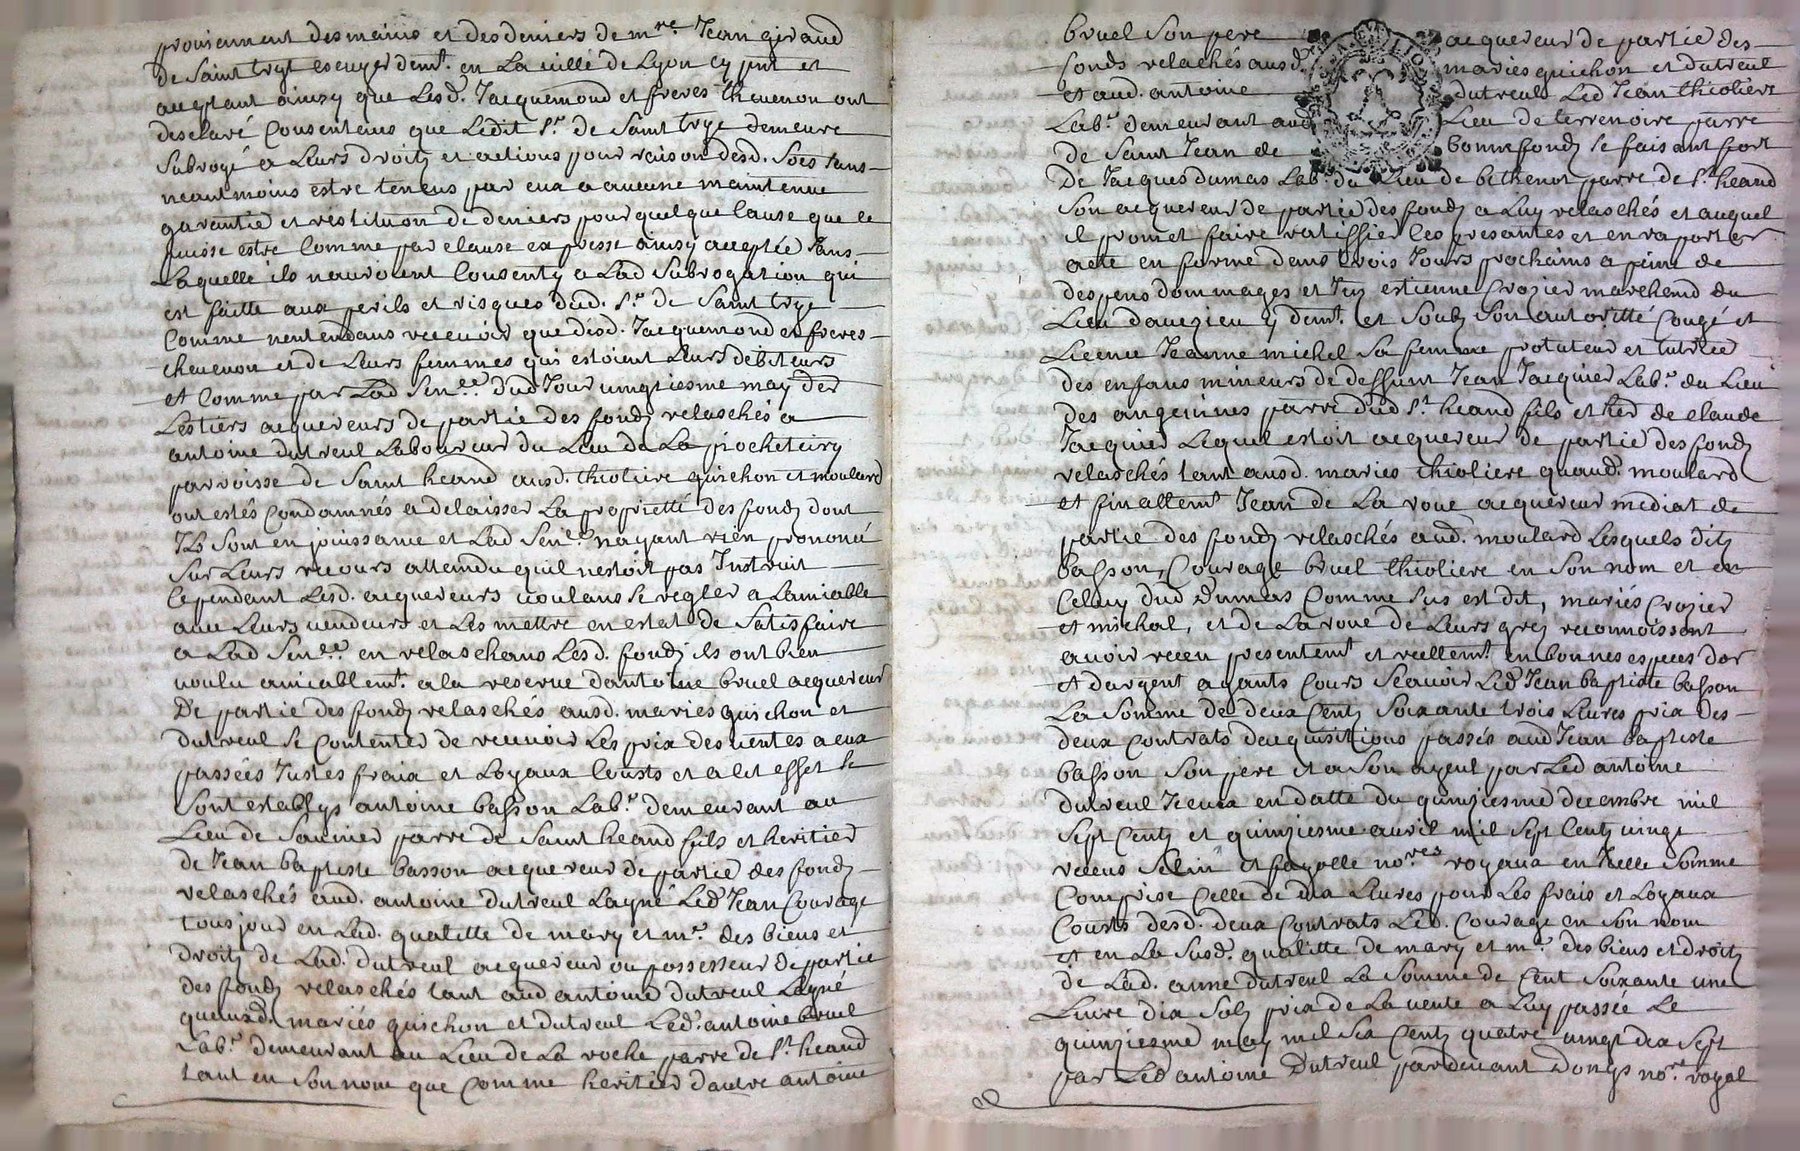 proviennent des mains et des deniers de mre. Jean giraud
de Saint trys escuyer demt. en La ville de Lyon cy pnt et
acceptant ainsy que Lesd. Jacquemond et freres thevenon ont
desclaré Consentans que Ledit Sr. de Saint trys demeure
Subrogé a Leurs droits et actions pour raison desd. Soes sans
neantmoins estre tenus par eux a aucune maintenue
garantie et restitution de deniers pour quelque Cause que ce
puisse estre Comme par clause expresse ainsy acceptée sans
Laquelle ils nauroient Consenty a Lad Subrogation qui
est faitte aux perils et risques dud. Sr. de Saint trys
Comme nentendans recevoir que desd. Jacquemond et freres
thevenon et de Leurs femmes qui estoient Leurs debiteurs
et Comme par Lad Sence. dud Jour vingtiesme may der
Les tiers acquereurs de partie des fonds relaschés a
antoine dutreul Laboureur du Lieu de La
parroisse de Saint heand aud. thioliere quichon et moulard
ont estés Condamnés a delaisser La proprietté des fonds dont
Ils Sont en jouissance et Lad Sence. nayant rien prononcé
Sur Leurs recours attendu quil nestoit pas Instruit
Cependant Lesd. acquereurs voulans se regler a Lamiable
avec Leurs vendeurs et Les mettre en estat de Satisfaire
a Lad Sence. en relaschans Lesd. fonds ils ont bien
voulu amiablemt. a la reserve dantoine bruel acquereur
De partie des fonds relaschés ausd. mariés quichon et
dutreul se Contenter de recevoir Les prix des ventes a eux
passées Justes fraix et Loyaux Cousts et a cet effet se
Sont establys antoine basson Labr. demeurant au
Lieu de Saunier parre de Saint heand fils et heritier
de Jean baptiste basson acquereur de partie des fonds
relaschés aud. antoine dutreul Layné Led Jean Courage
tousjour en Lad. qualitté de mary et me. des biens et
droits de Lad. dutreul acquereur ou possesseur de partie
des fonds relaschés tant aud antoine dutreul Layné
quausd. mariés quichon et dutreul Led. antoine bruel
Labr. demeurant au Lieu de La roche parre de St. heand
tant en Son nom que Comme heritier dautre antoine
bruel Son pere acquereur de partie des
fonds relachés ausd. mariés quichon et dutreul
et aud. antoine dutreul Led Jean thioliere
Labr. demeurant aud Lieu de terrenoire parre
de Saint Jean de bonnefonds se faisant fort
De Jacques dumas Labr. du Lieu de bethenot parre de St. heand
Son acquereur de partie des fonds a Luy relaschés et auquel
il promet faire ratiffier Ces presantes et en raporter
acte en forme dans trois Jours prochains a peine de
despens dommages et Intz estienne Crozier marchand du
Lieu daveizieu y demt. et Soubs Son autoritté Congé et
Licence Jeanne michel Sa femme protuteur et tutrice
des enfans mineurs de deffunt Jean Jacquier Labr. du Lieu
des angevines parre dud St. heand fils et her de claude
Jacquier Lequel estoit acquereur de partie des fonds
relaschés tant ausd. mariés thioliere quaud. moulard
et finallemt. Jean de La roue acquereur mediat de
partie des fonds relaschés aud. moulard Lesquels dits
basson, Courage bruel thioliere en Son nom et en
Celuy dud Dumas Comme Sus est dit, mariés Crozier
et michel, et de La roue de Leurs grés reconnoissent
avoir receu presentemt. et reellemt. en bonnes especes dor
et dargent ayants Cours Scavoir Led Jean baptiste basson
La Somme de deux Cents Soixante trois Livres prix des
deux Contrats dacquisitions passés aud Jean baptiste
basson Son pere et a Son ayeul par Led antoine
dutreul Iceux en datte du quinziesme decembre mil
Sept Cents et quinziesme avril mil Sept Cents vingt
receus et fayolle nores. royaux en Icelle Somme
Comprise Celle de dix Livres pour Les frais et Loyaux
Cousts desd. deux Contrats Led. Courage en Son nom
et en La Susd. qualitté de mary et me. des biens et droits
de Lad. anne dutreul La Somme de Cent Soixante une
Livre dix Sols prix de La vente a Luy passée Le
quinziesme may mil Six Cents quatre vingt dix Sept
par Led antoine Dutreul pardevant Donys nore. royal